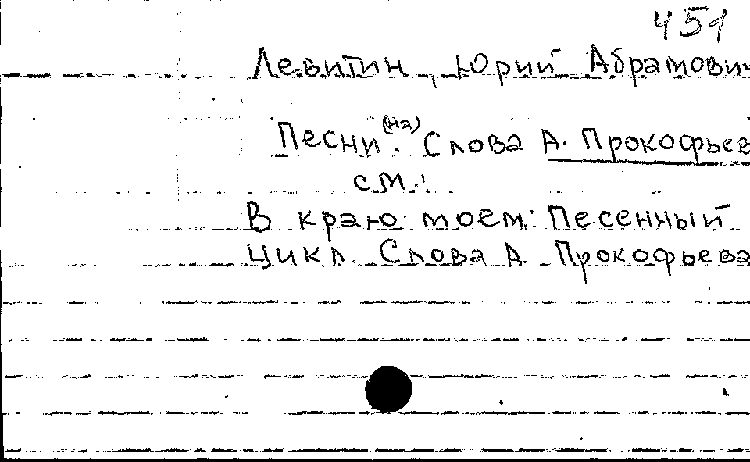 451
Левитин, Юрий Абрамович
Песни (на) Слова А. Прокофьев
см.:
В краю моем: Песенный
цикл. Слова А. Прокофьева